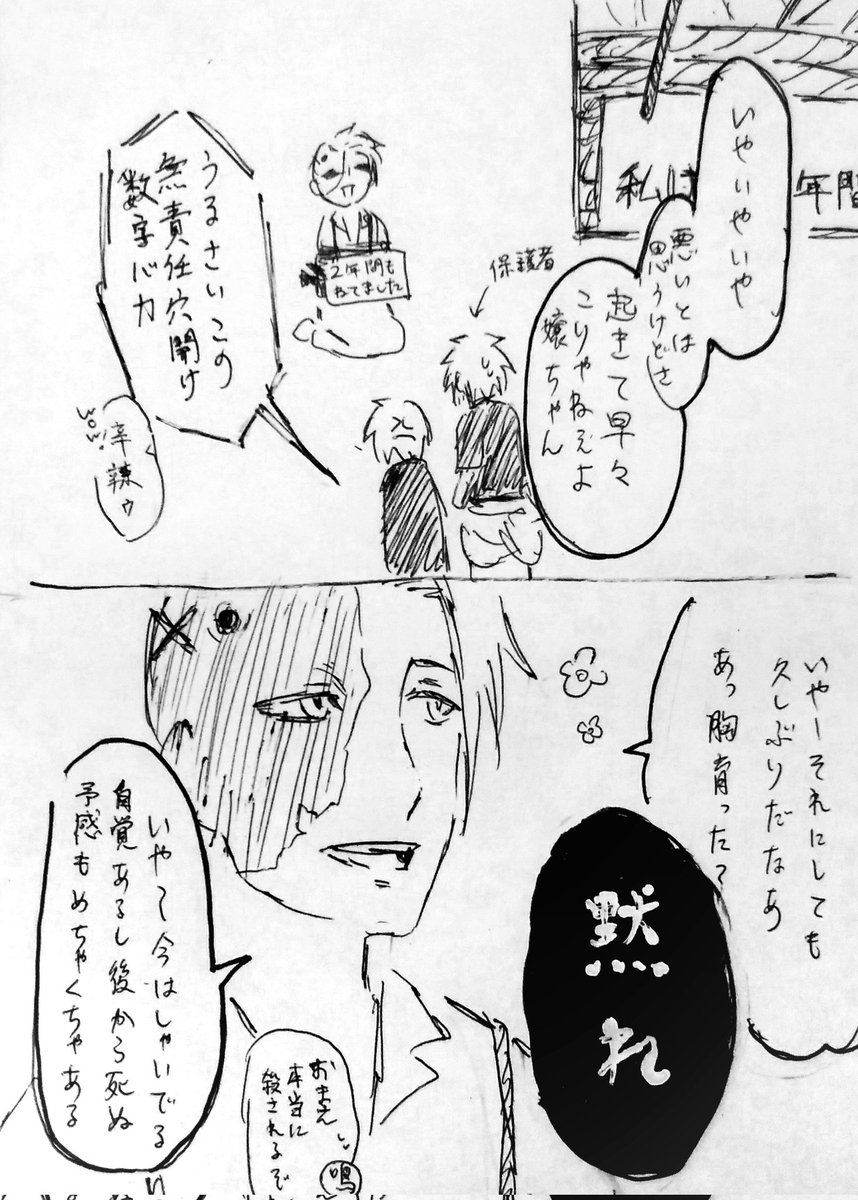 いやいやいや
悪いとは
思うけどさ
起きて早々
こりゃねぇよ
嬢ちゃん
私は
年間
保護者
2年間も
ねてました
うるさいこの
無責任穴開け
数字バカ
wow!
辛辣ゥ
いやーそれにしても
久しぶりだなあ
あっ胸育った?
黙れ
いやて今はしゃいでる
自覚あるし後から死ぬ
予感もめちゃくちゃある
おまえ
本当に
殺されるぞ
鳴